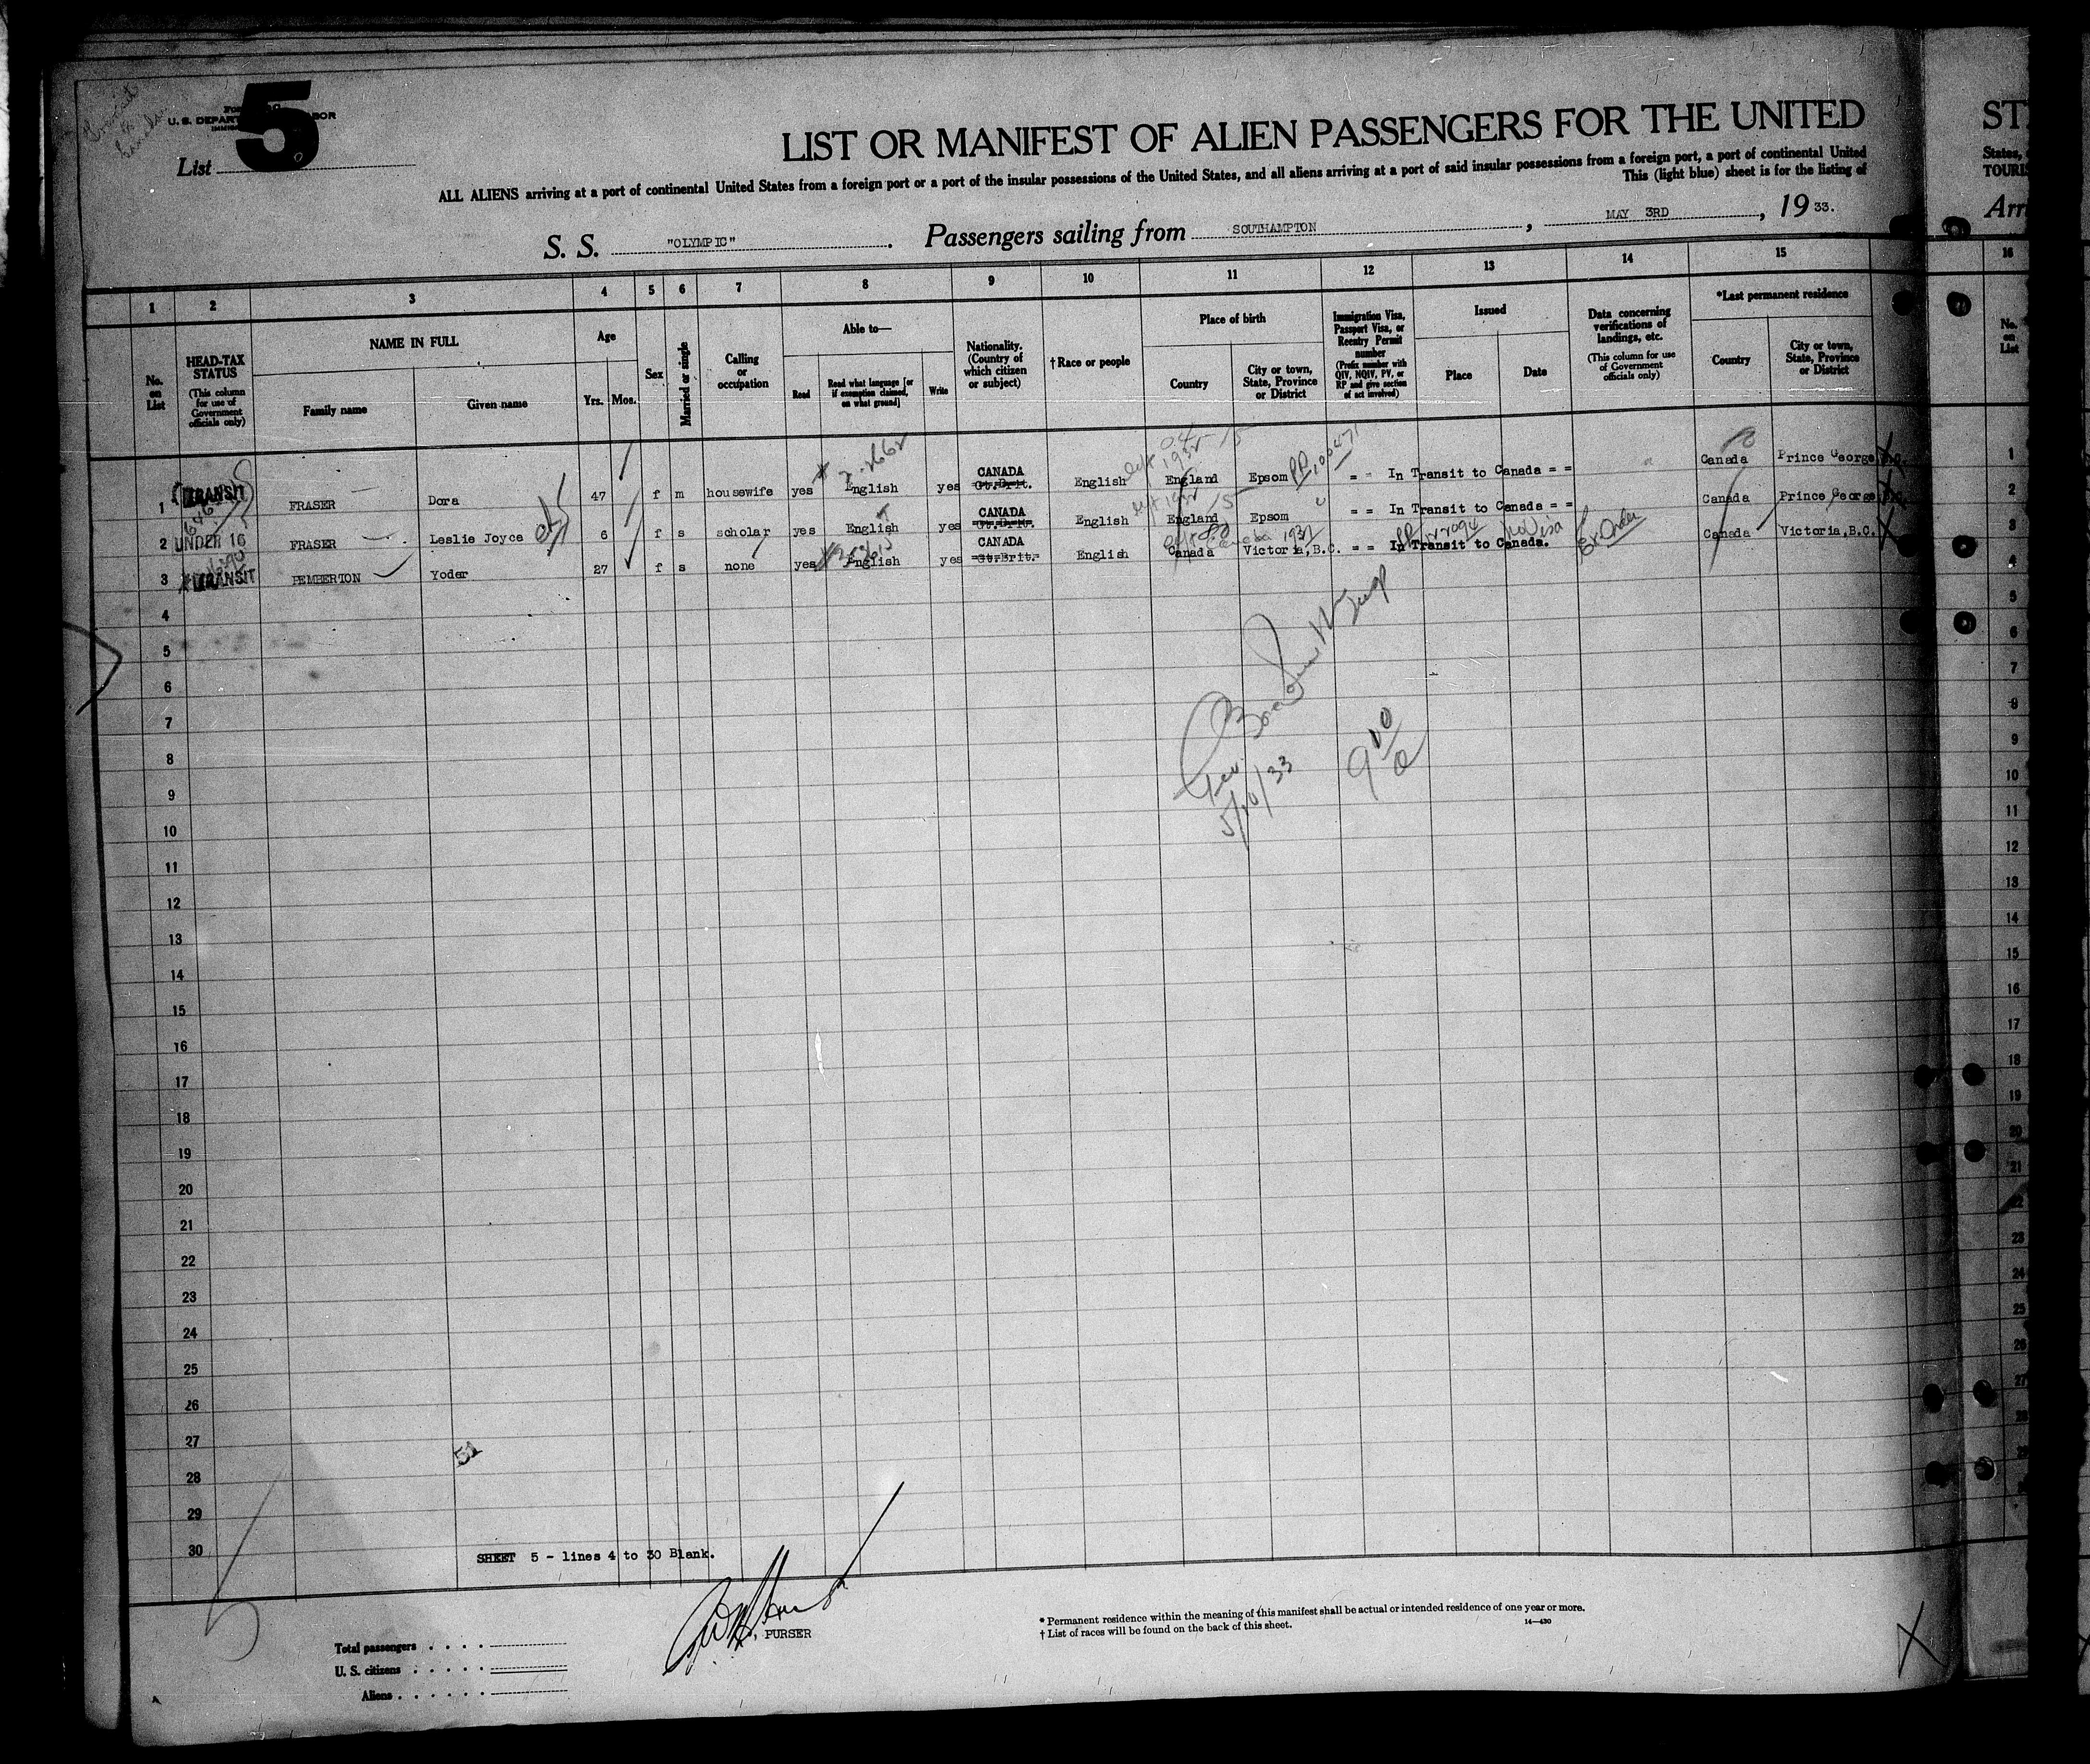 5
U. S. DEPART BOR
List
LIST OR MANIFEST OF ALIEN PASSENGERS FOR THE UNITED
ST
ALL ALIENS arriving at a port of continental United States from a foreign port or a port of the insular possessions of the United States, and all aliens arriving at a port of said insular possessions from a foreign port, a port of continental United
States,
This (light blue) sheet is for the listing of
TOURIS
S. S. "OLYMPIC". Passengers sailing from SOUTHAMPTON, MAY 3RD, 1933.
Arri
1 2 3 4 5 6 7 8 9 10 11 12 13 14 15 16
No. on List
HEAD-TAX STATUS
(This column for use of Government officials only)
NAME IN FULL
Family name
Given name
Age
Yrs. Mos.
Sex
Married or single
Calling or occupation
Able to—
Read
Read what language [or if exemption claimed, on what ground]
Write
Nationality. (Country of which citizen or subject)
†Race or people
Place of birth
Country
City or town, State, Province or District
Immigration Visa, Passport Visa, or Reentry Permit number
(Prefix number with QIV, NQIV, PV, or RP and give section of act involved)
Issued
Place
Date
Data concerning verifications of landings, etc.
(This column for use of Government officials only)
*Last permanent residence
Country
City or town, State, Province or District
No. on List
1 TRANSIT FRASER Dora 47 f m housewife yes English yes CANADA Gt.Brit. English England Epsom = = In Transit to Canada = = Canada Prince George B.C. 1
2 UNDER 16 FRASER Leslie Joyce 6 f s scholar yes English yes CANADA Gt.Brit. English England Epsom = = In Transit to Canada = = Canada Prince George B.C. 2
3 TRANSIT PEMBERTON Yoder 27 f s none yes English yes CANADA Gt.Brit. English Canada Victoria, B.C. = = In Transit to Canada. No Visa Canada Victoria, B.C. 3
4
5
6
7
8
9
10
11
12
13
14
15
16
17
18
19
20
21
22
23
24
25
26
27
28
29
30
5/10/33
51
SHEET 5 - lines 4 to 30 Blank.
, PURSER
Total passengers
U. S. citizens
Aliens
* Permanent residence within the meaning of this manifest shall be actual or intended residence of one year or more.
† List of races will be found on the back of this sheet.
14—430